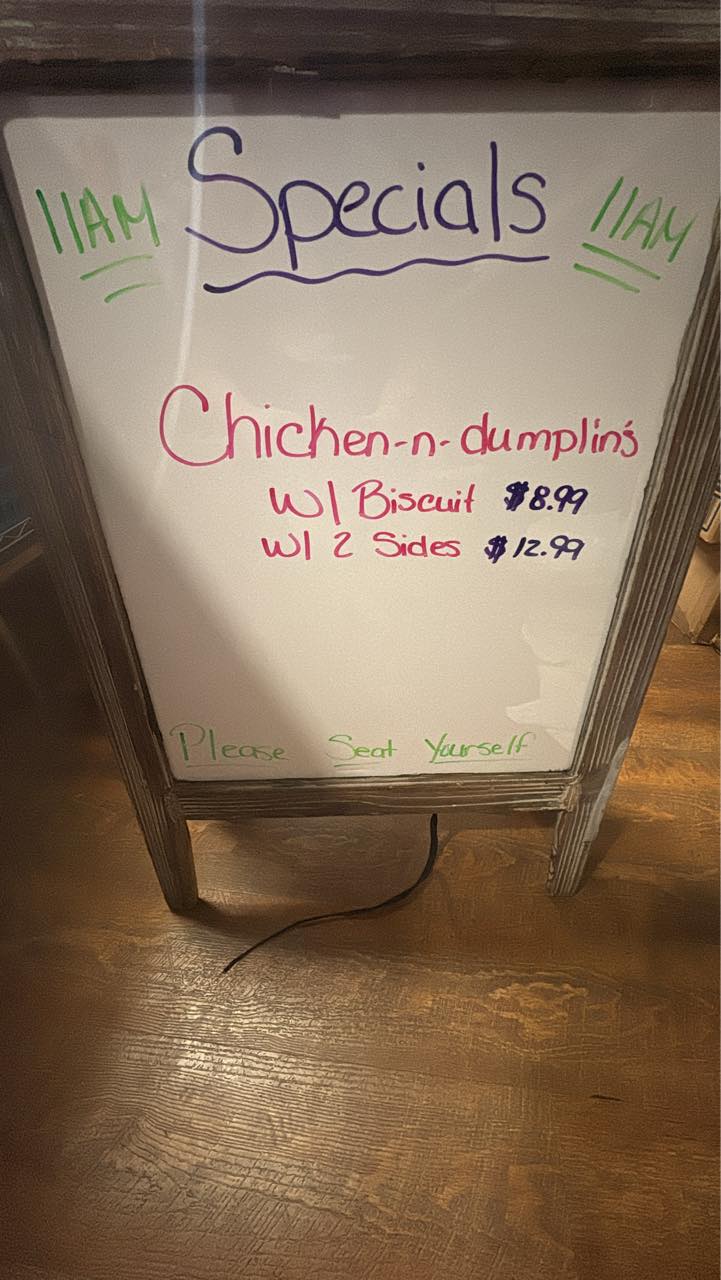 11AM Specials 11AM
Chicken-n-dumplin's
W/ Biscuit $8.99
W/ 2 Sides $12.99
Please Seat Yourself